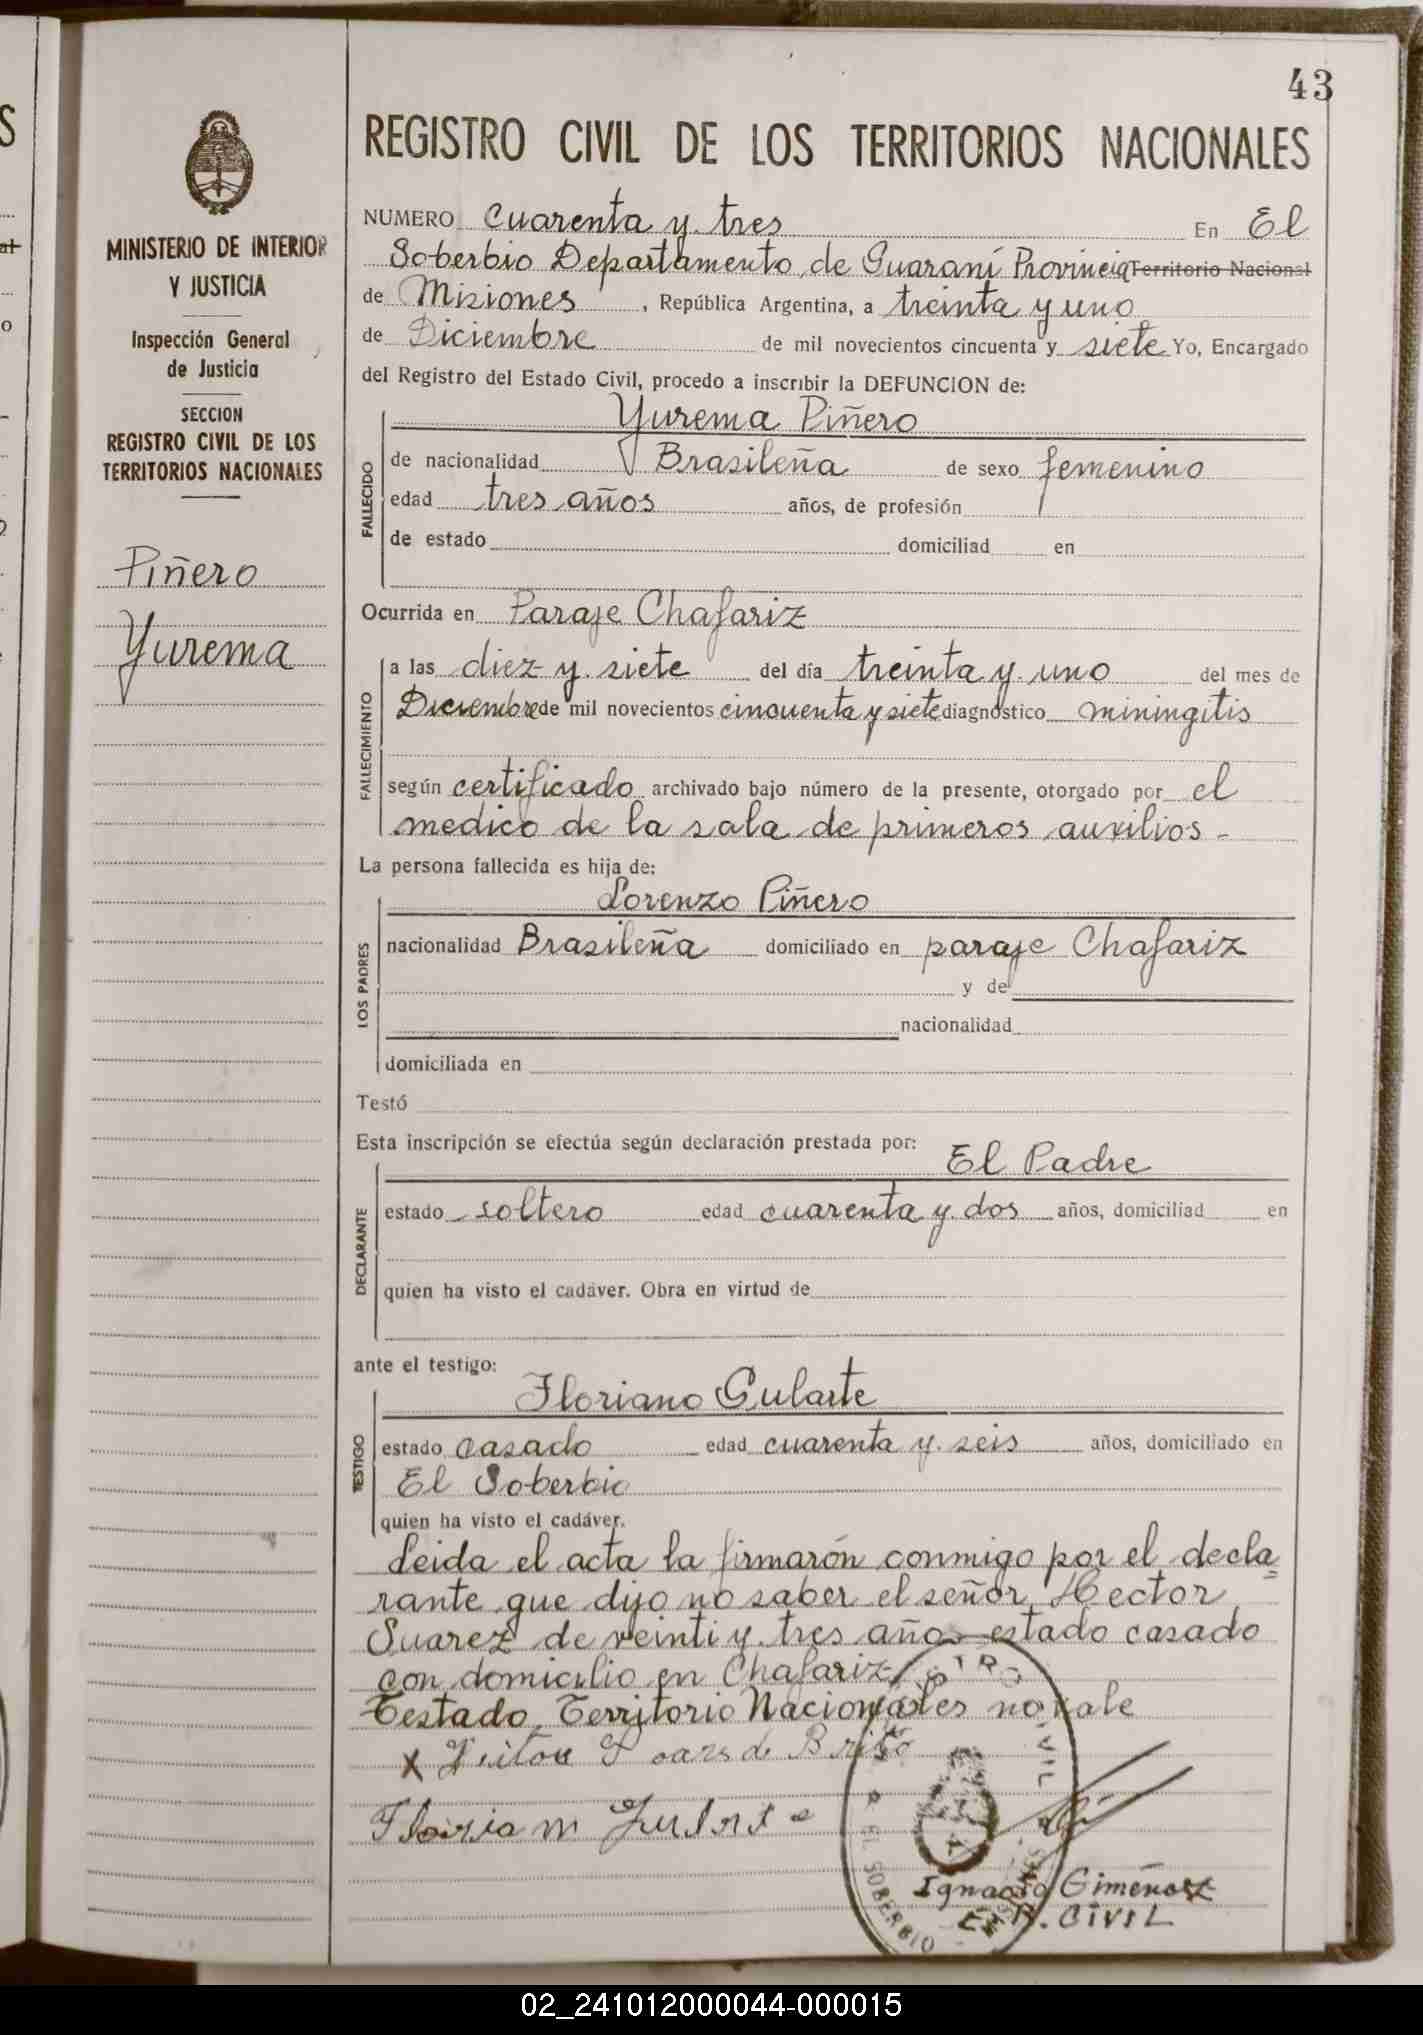 43
REGISTRO CIVIL DE LOS TERRITORIOS NACIONALES
MINISTERIO DE INTERIOR
Y JUSTICIA
Inspección General
de Justicia
SECCION
REGISTRO CIVIL DE LOS
TERRITORIOS NACIONALES
Piñero
Yurema
NUMERO cuarenta y tres En El
Soberbio Departamento de Guaraní Provincia Territorio Nacional
de Misiones, República Argentina, a treinta y uno
de Diciembre de mil novecientos cincuenta y siete Yo, Encargado
del Registro del Estado Civil, procedo a inscribir la DEFUNCION de:
Yurema Piñero
FALLECIDO
de nacionalidad Brasileña de sexo femenino
edad tres años años, de profesión
de estado domiciliad en
Ocurrida en Paraje Chafariz
FALLECIMIENTO
a las diez y siete del día treinta y uno del mes de
Diciembre de mil novecientos cincuenta y siete diagnóstico miningitis
según certificado archivado bajo número de la presente, otorgado por el
medico de la sala de primeros auxilios -
La persona fallecida es hija de:
Lorenzo Piñero
LOS PADRES
nacionalidad Brasileña domiciliado en paraje Chafariz
y de
nacionalidad
domiciliada en
Testó
Esta inscripción se efectúa según declaración prestada por:
El Padre
DECLARANTE
estado soltero edad cuarenta y dos años, domiciliad en
quien ha visto el cadáver. Obra en virtud de
ante el testigo:
Floriano Gularte
TESTIGO
estado casado edad cuarenta y seis años, domiciliado en
El Soberbio
quien ha visto el cadáver.
Leida el acta la firmarón conmigo por el decla=
rante que dijo no saber el señor Hector
Suarez de veinti y tres años estado casado
con domicilio en Chafariz
Testado Territorio Nacionales no vale
X de Brito
EL SOBERBIO
Ignacio Gimenez
R. CIVIL
02_241012000044-000015